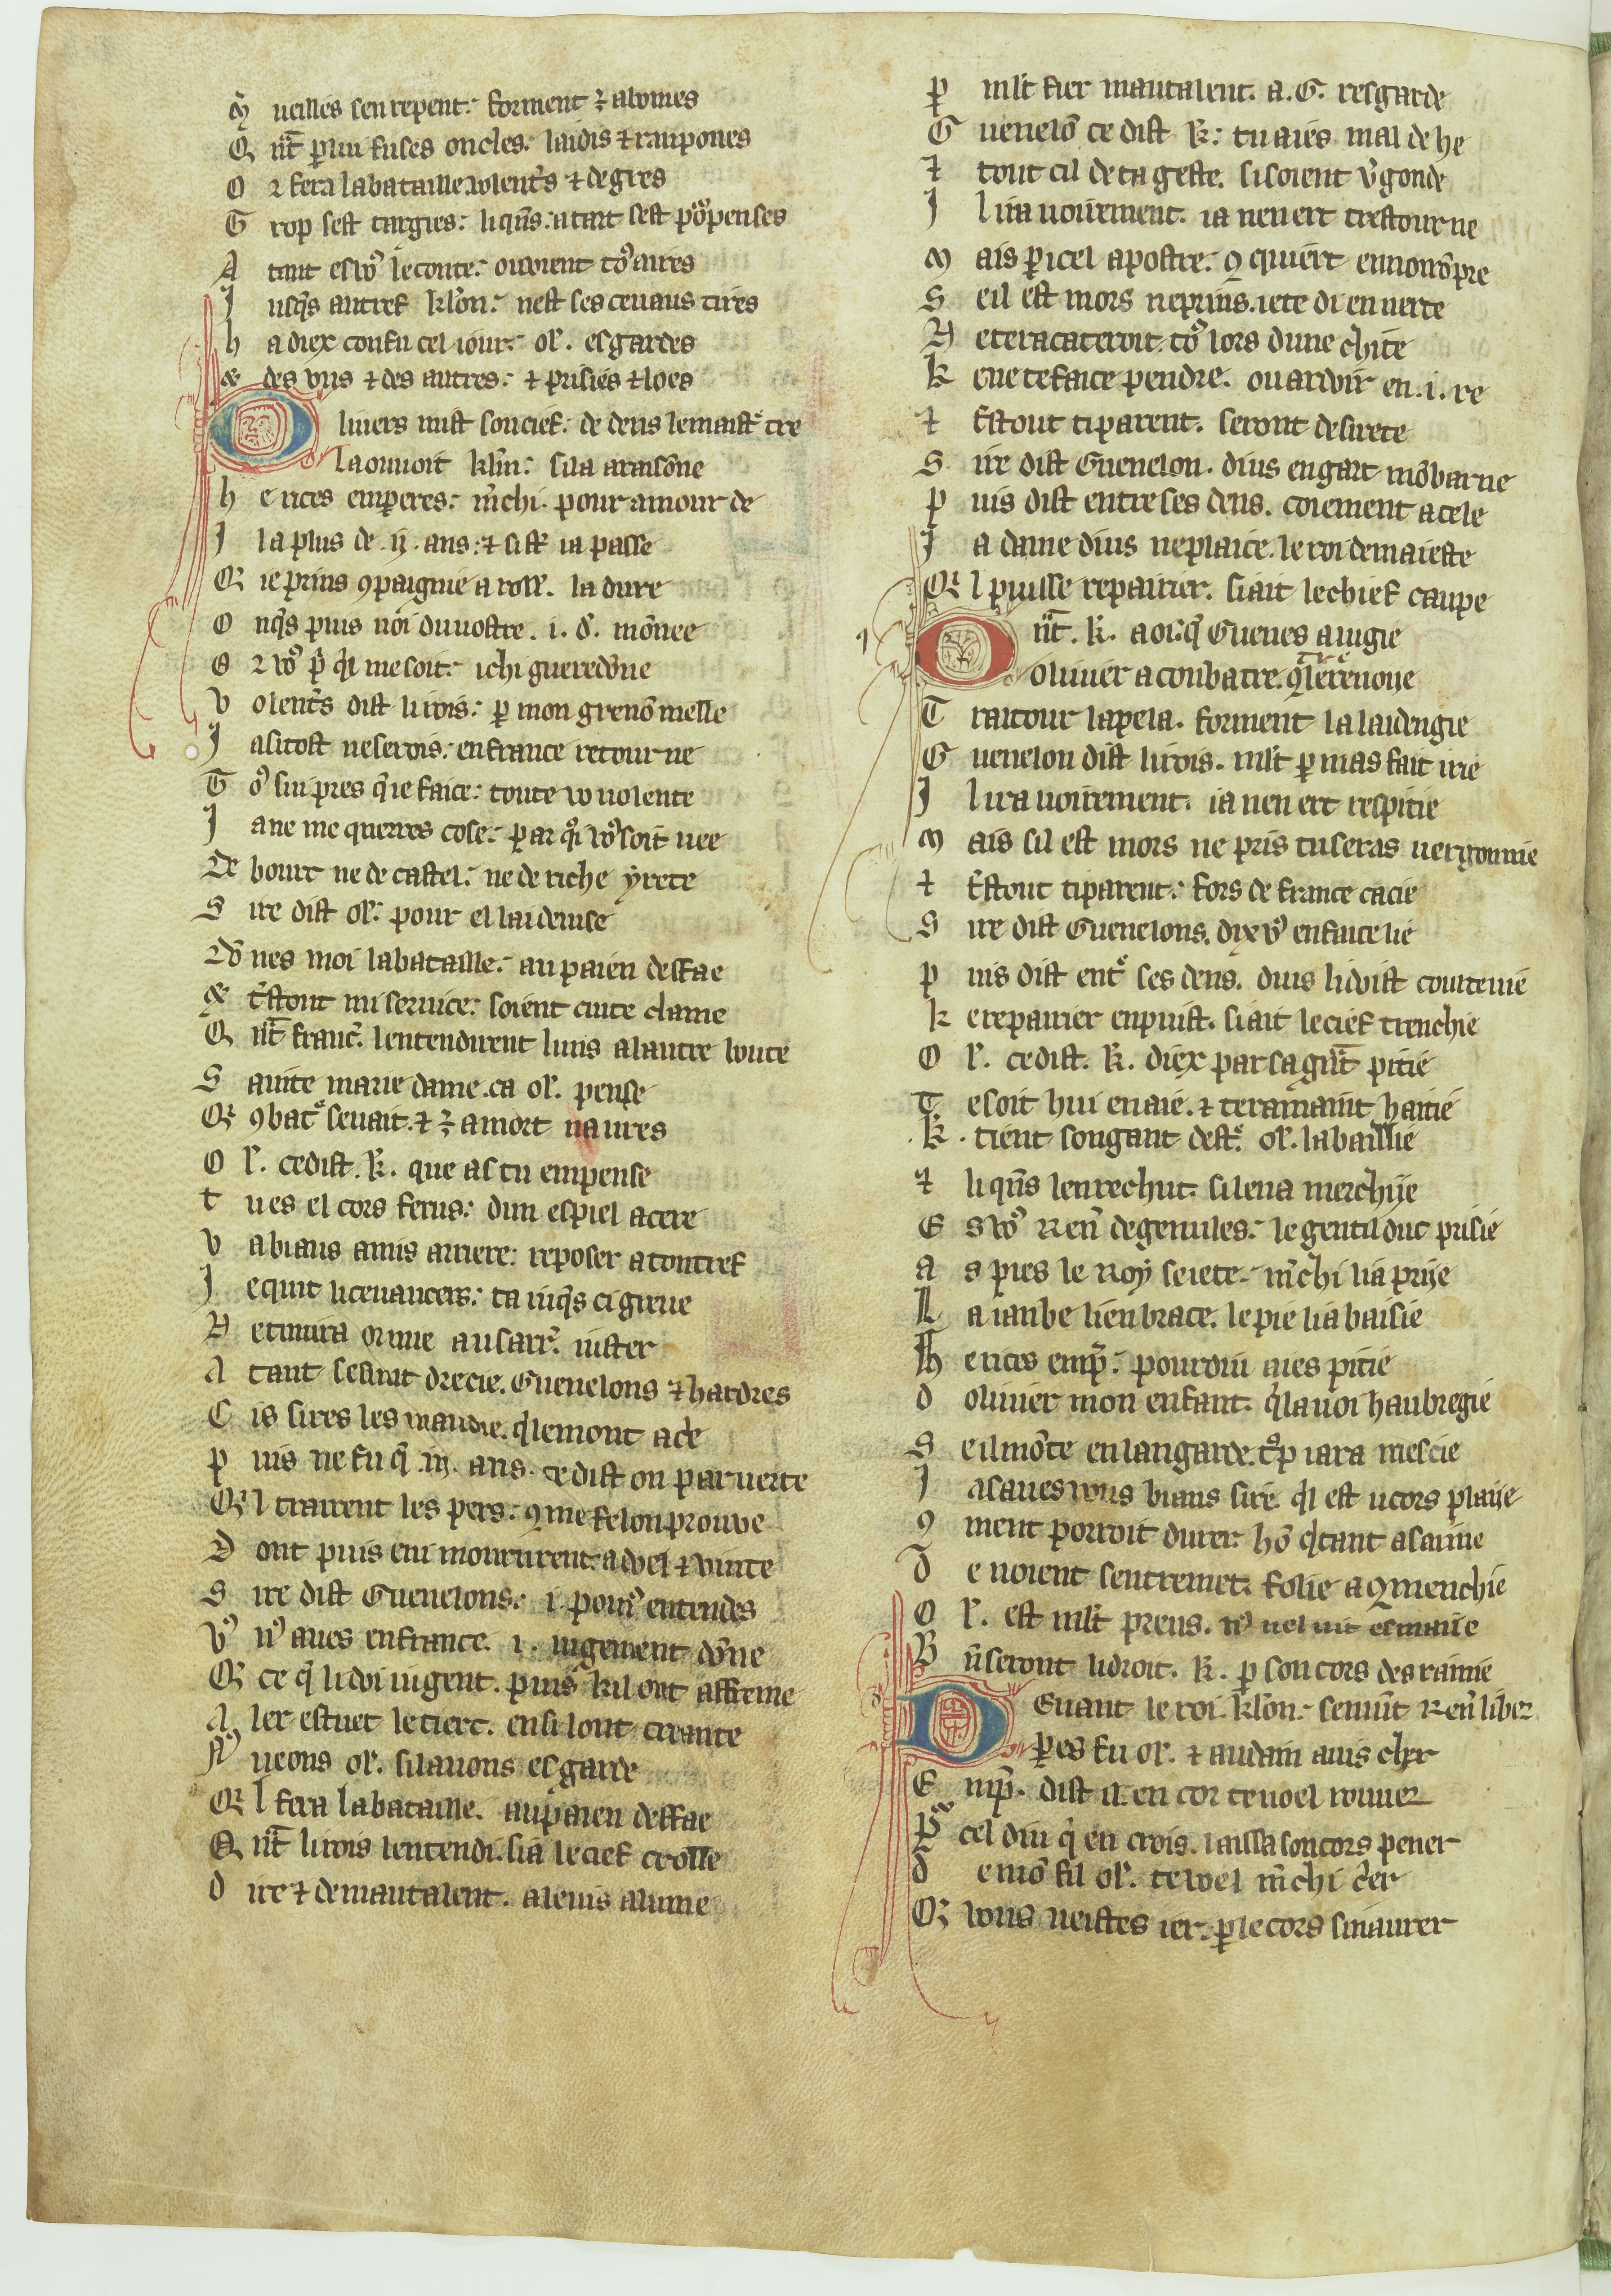 M ueilles sen repent. forment ⁊ alosmes
Q nt̄ ꝑ lui fu ses oncles. laidis ⁊ ranpones
O r fera la bataille volent̾s ⁊ de gres
T rop sest targies. li qu̅s. a tart sest po̾penses
A tant es vo̾ le conte. ouurent to̾ aires
J usq̾s au tref kl̾on. nest ses ceuaus tires
h a diex con fu cel iour. ol̾. esgardes
⁊ des vns ⁊ des autres. ⁊ prisies ⁊ loes
O liuiers mist son cief. de dens le maist̾ tre
La ou uoit kl̾m. si la araisone
h e rices emꝑeres. m̾chi. pour amour de
J l a plus de .ij. ans. ⁊ si est ia passe
Q̾ ie prins ꝯpaignie a roll̾. la dure
O nq̾s puis noi du uostre .i. d̾. mōnee
O r vo̾ pͥ qͥl me soit. ichi gueredōne
V olent̾s dist li rois. ꝑ mon grenō melle
J a si tost ne serois. en france retourne
T o̾ sui pres q̾ ie face. toute vo uolente
J a ne me querres cose. ꝑ ar qͦi vo̾ soit uee
De bourt ne de castel. ne de riche yrete
S ire dist ol̾. pour el lai deuise
Dō nes moi la bataille. au paien deffae
⁊ t̾stout mi seruice. soient cuite clame
Q nt̄ franc̾. lentendirent li uns a lautre boute
S ainte marie dame. ca ol̾. pense
Q̾ ꝯbat̾ se uait. ⁊ ⁊ a mort naures
O l̾. ce dist. k̾. que as tu empense
t u es el cors ferus. dun espiel acere
V a biaus amis arriere. reposer a ton tref
J e quit li ceuauciers. ta iusq̾s ci greue
N e tinura or mie au sarr̾. iuster
A tant se sunt drecie. Guenelons ⁊ hardres
C is sires les maudie. qͥ le mont a de
P uis ne fu q̾ .iij. ans. ce dist on par uerte
Q̾l trairent les pers. ꝯme felon prouue
D ont puis en moururent. a doel ⁊ a uinte
S ire dist Guenelons. .i. po un̾ entendes
V̾ n̾ aues en france .i. iugement dōne
Q̾ ce q̾ li doi iugent. puis kil ont afferme
A ler estuet le tierc. ensi lont creante
N̾ ueons ol̾. si lauons esgarde
Q̾l fera la bataille. au paien deffae
Q nt̄ li rois lentendi. si a le cief crolle
D ire ⁊ de mautalent. a le uis alume
P mlt̾ fier mautalent. a. G. resgarde
G uenelō ce dist k̾. tu aies mal de he
⁊ tout cil de ta geste. si soient v̾gonde
J l ira uoirement. ia nen ert trestourne
M ais ꝑ icel apostre. ꝯ quiert en noirō pre
S eil est mors ne prins. ie te di en uerte
N e te racateroit. to̾ lors dune chite
K e ne te face pendre. ou ardoir en .i. re
⁊ t̾stout ti parent. seront desirete
S ire dist Guenelon. dius en gart mō barne
P uis dist entre ses dens. coiement a cele
J a dame dius ne place. le roi de maieste
Q̾l puisse repairier. si ait le chief caupe
Q nt̄. k̾. a oi. q̾ Guenes a iugie
Oliuier a conbatre. qͥl en enuoye
T raitour lapela. forment la laidengie
G uenelon dist li rois. mlt̾ ꝑ mas fait irie
J l ira uoirement. ia nen ert respitie
M ais sil est mors ne pris tu seras uergonnie
⁊ t̾stout ti parent. fors de france cacie
S ire dist Guenelons. dix vo̾ en face lie
P uis dist ent̾ ses dens. dius li doist courteuie
K e repairier en puist. si ait le cief trenchie
O l̾. ce dist. k̾. diex par sa gn̾t pitie
T e soit hui en aie. ⁊ te ramaint haitie
. k̾. tient son gant dest̾. ol̾. la baillie
⁊ li qu̅s len rechut. si lena merchije
E s vo̾ ren̾ de gennes. le gentil duc prisie
A s pies le Roy se iete. m̾chi li a prije
L a ianbe li en brace. le pie li a baisie
H e rices emp̾. pour diu aies pitie
D oliuier mon enfant. qͥ la uoi haubregie
S eil mōte en langarde. tͦp iara mescie
J a saues vous biaus sire. qͥl est u cors plaije
ꝯ ment porroit durer. hō qͥ tant a saine
D e noient sentremet. folie a ꝯmenchie
O l̾. est mlt̾ preus.
B n̅ seront li droit. k̾. ꝑ son cors desraisnie
D Euant le roi. kl̾on. se mist ren̾ li ber
Peres fu ol̾. ⁊ audain au vis cler
E mp̾. dist il. en cor te uoel rouuer
P̾ cel diu qͥ en crois. laissa son cors pener
D e mō fil ol̾. te voel m̾chi crier
Q̾ vous ueistes ier. ꝑ le cors si naurer